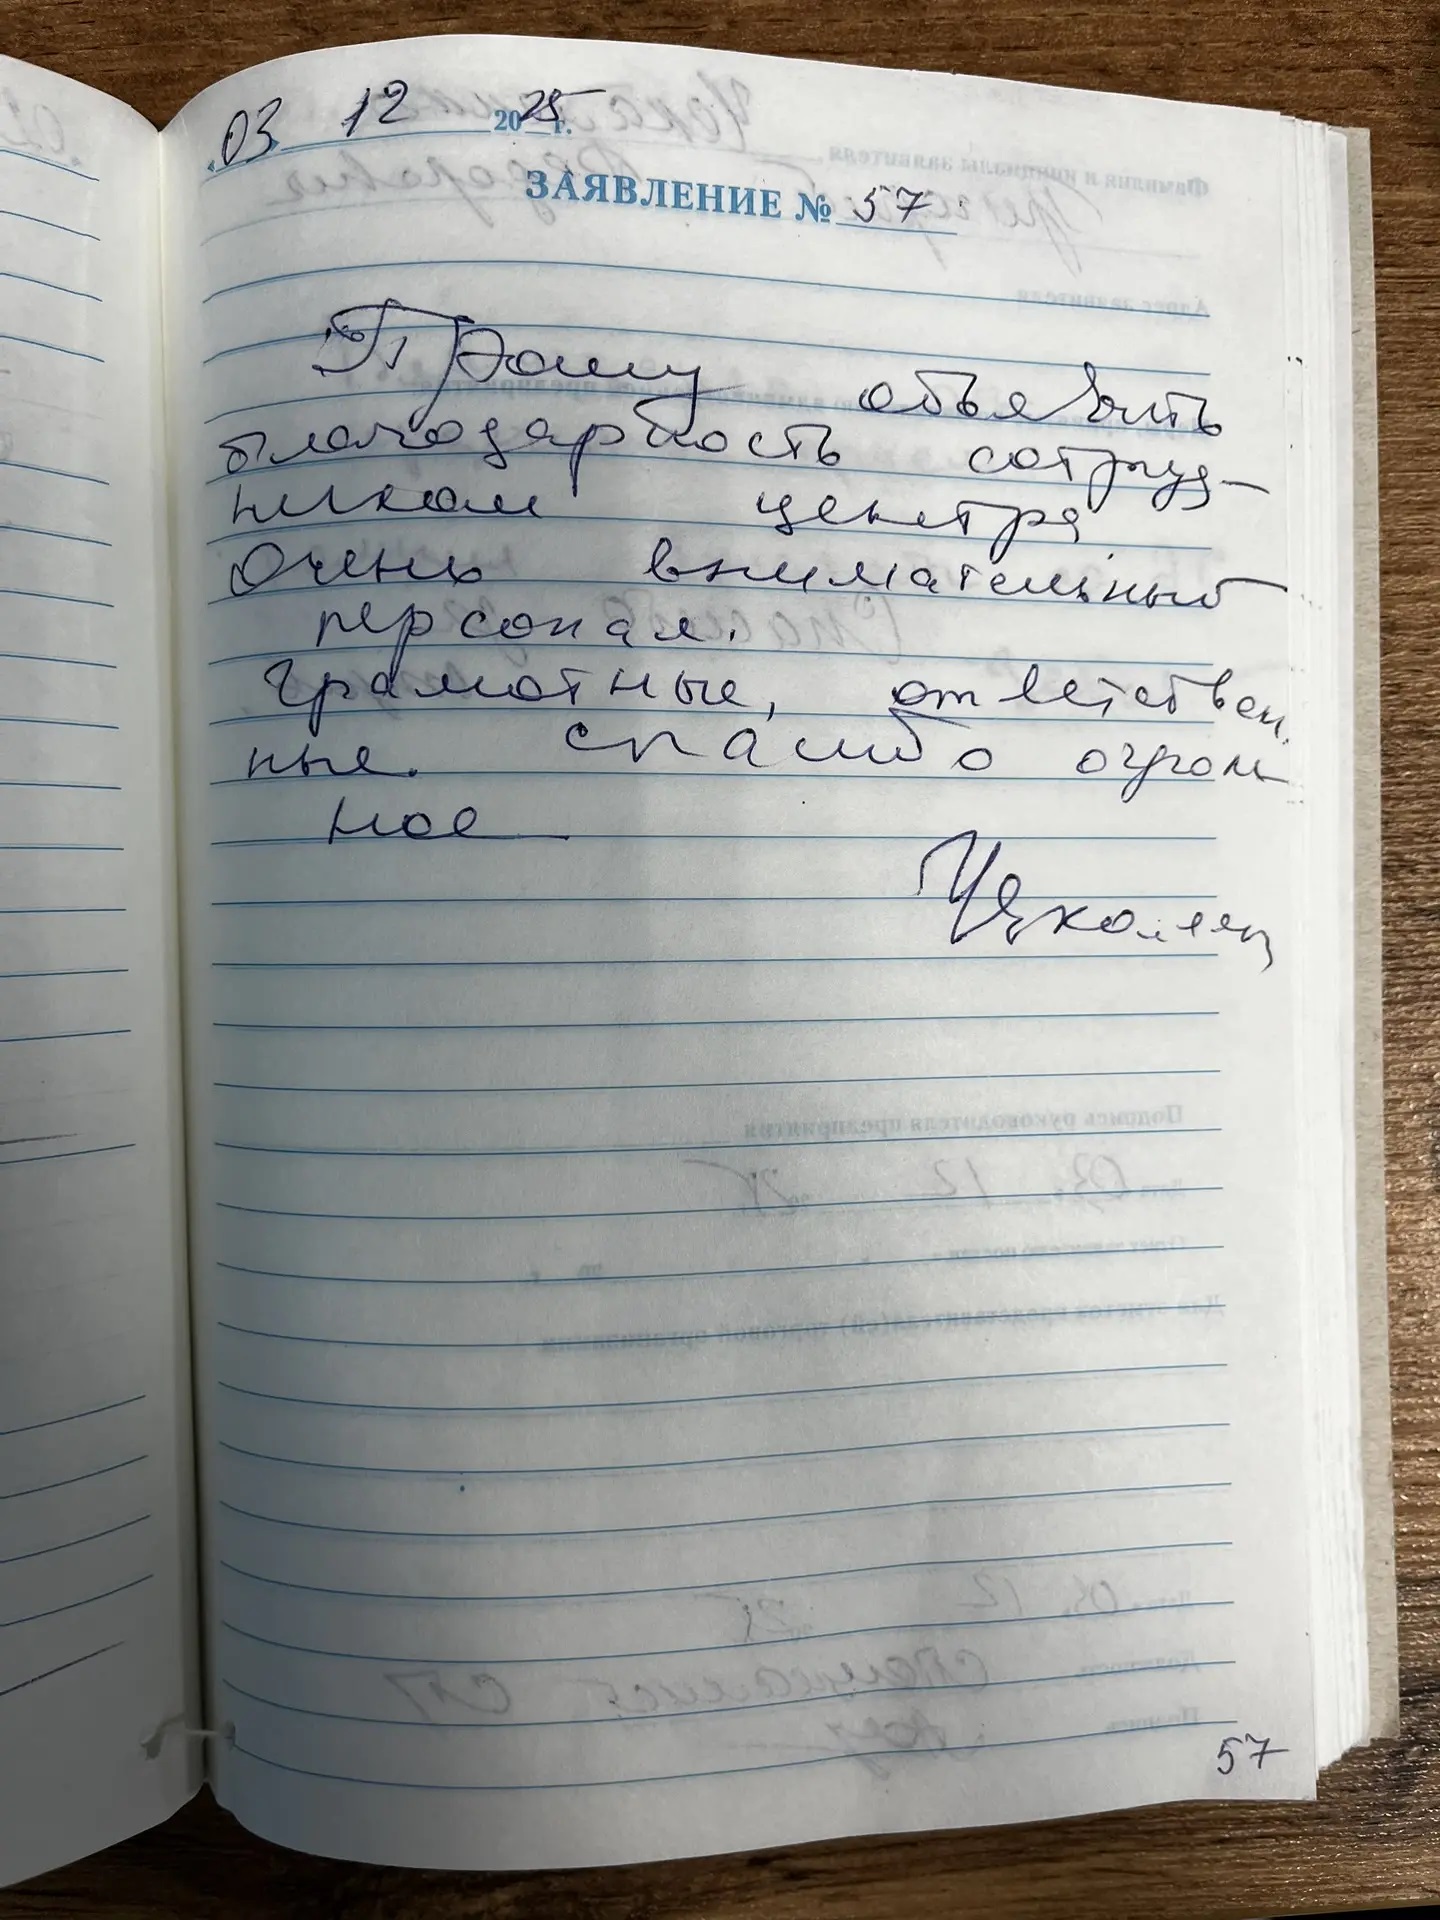 «03» 12 2025 г.
ЗАЯВЛЕНИЕ № 57
Прошу объявить
благодарность сотруд-
никам центра
Очень внимательный
персонал.
Грамотные, ответствен
ные. Спасибо огром
ное
57